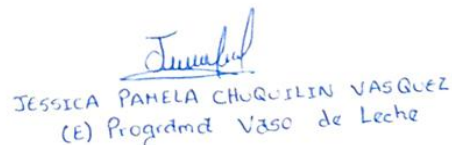 JESSICA PAMELA CHUQUILIN VASQUEZ
(E) Programa Vaso de Leche